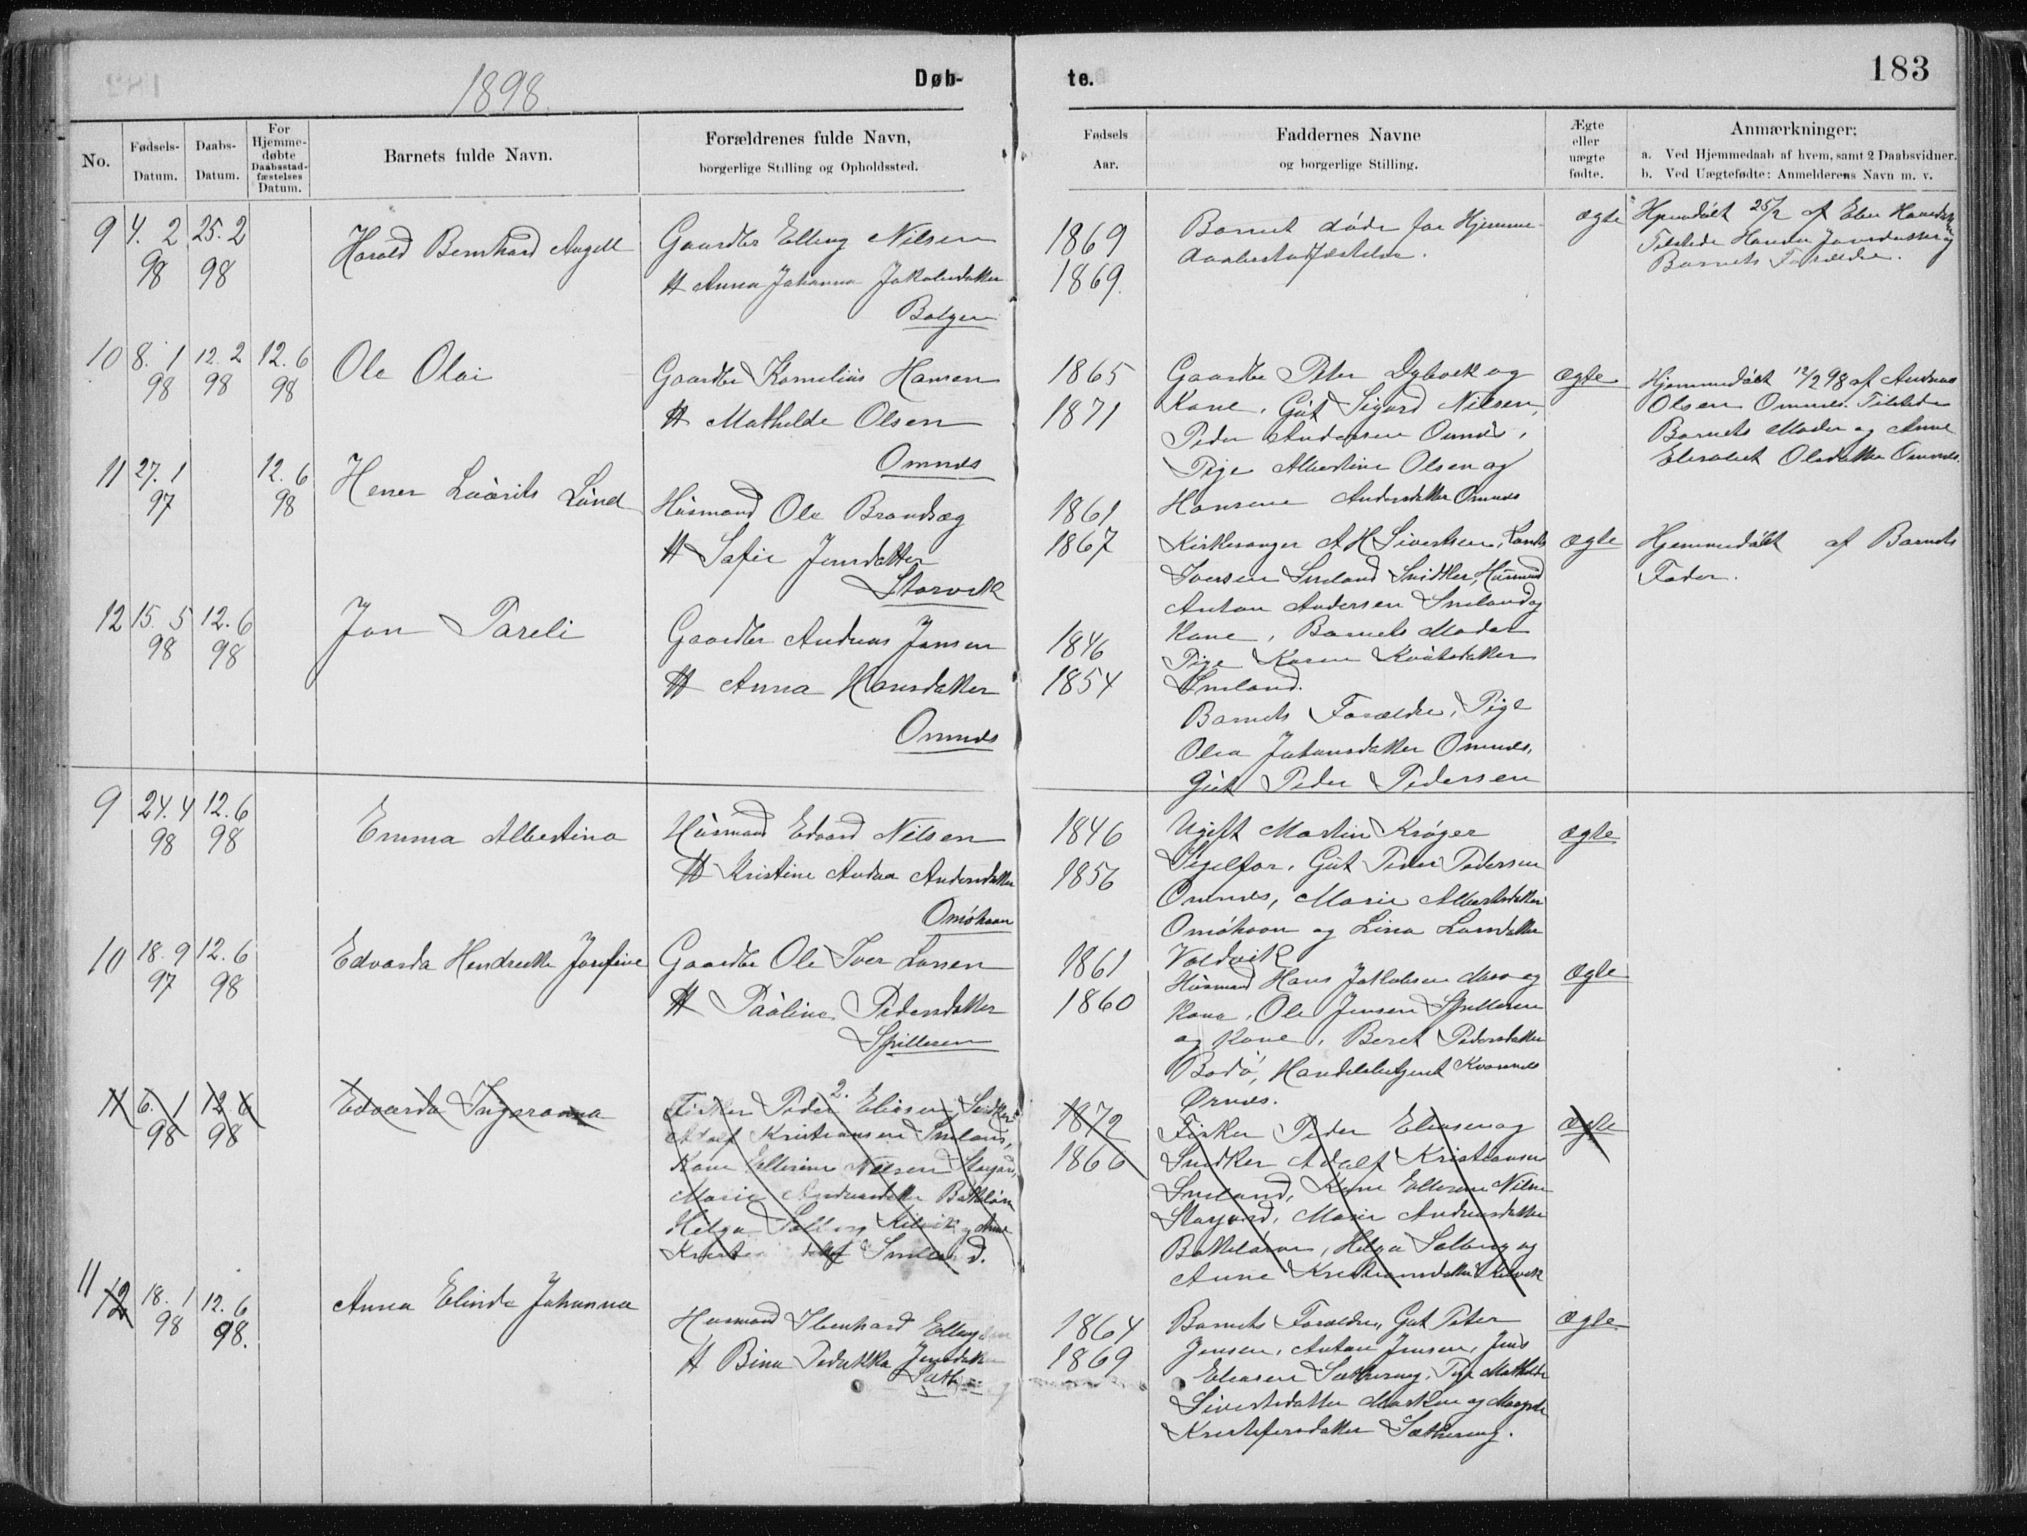 1898.
Døb-
te.
183
No.
Fødsels-
Datum.
Daabs-
Datum.
For
Hjemme-
døbte
Daabsstad-
fæstelses
Datum.
Barnets fulde Navn.
Forældrenes fulde Navn,
borgerlige Stilling og Opholdssted.
Fødsels
Aar.
Faddernes Navne
og borgerlige Stilling.
Ægte
eller
uægte
fødte.
Anmærkninger:
a. Ved Hjemmedaab af hvem, samt 2 Daabsvidner.
b. Ved Uægtefødte: Anmelderens Navn m. v.
9 4. 2 25. 2
98 98
Harald Bernhard Angell
Gaardbr Elling Nilsen
H Anna Johanna Jakobsdatter
Bolgen
1869
1869.
Barnet døde før Hjemme-
daabsstadfæstelse.
ægte
Hjemdøbt 25/2 af
Tilstede Hanna Jonsdatter og
Barnets Forældre.
10 8. 1 12. 2 12. 6
98 98 98
Ole Olai
Gaardbr Kornelius Hansen
H Mathilde Olsen
Omnes
1865
1871
Gaardbr Peter Dybvik og
Kone, Gut Sigurd Nilsen,
Peder Andersen Omnes,
Pige Albertine Olsen og
Hansine Andersdatter Omnes
ægte
Hjemmedøbt 12/2 98 af Andreas
Olsen Omnes. Tilstede
Barnets Moder og Anne
Elisabet Olsdatter Omnes.
11 27. 1 12. 6
97 98
Hener Laurits Lund
Husmand Ole Brandsæg
H Sofie Jensdatter
Storvik
1861
1867
Kirkesanger A H Sivertsen,
Iversen Smeland Snidker, Husmand
Anton Andersen Smeland og
Kone, Barnets Moder
Pige Karen
Smeland.
ægte
Hjemmedøbt af Barnets
Fader.
12 15. 5 12. 6
98 98
Jon Pareli
Gaardbr Andreas Jonsen
H Anna Hansdatter
Omnes
1846
1854
Barnets Forældre, Pige
Olea Johansdatter Omnes,
Gut Peder Pedersen
9 24. 4 12. 6
98 98
Emma Albertina
Husmand Edvard Nilsen
H Kristine Andrea Andersdatter
Omøhavn
1846
1856
Ugift Martin Krøger
Selfor, Gut Peder Pedersen
Omnes, Marie Albertsdatter
Omøhavn og Lina Larsdatter
Valdvik
ægte
10 18. 9 12. 6
97 98
Edvarda Hendrikke Josefine
Gaardbr Ole Iver Larsen
H Pauline Pedersdatter
Spilderen
1861
1860
Husmand Hans Jakobsen og
Kone, Ole Jensen Spilderen
og Kone, Beret Pedersdatter
Bodø, Handelsbetjent
Ørnes.
ægte
11 6. 1 12. 6
98 98
Edvarda Ingaranna
2.
Fisker Peder Eliasen, Snidker
Adolf Kristiansen Smeland,
Kone Ellerine Nilsen Stagnes,
Marie Andreasdatter Bakkelaven
Helga Solberg Kilvik og Anne
Smeland.
1872
1866
Fisker Peder Eliasen og
Snidker Adolf Kristiansen
Smeland, Kone Ellerine Nilsen
Marie Andreasdatter
Helga Solberg og
Anne Kristiansdatter Kilvik
ægte
11
12 18. 1 12. 6
98 98.
Anna Elinda Johanna
Husmand Ibenhard
H Bina Jensdatter
1864
1869
Barnets Forældre, Gut Peter
Jensen, Anton Jensen, Jens
Eliasen Sætereng, Pige Mathilde
Sivertsdatter og
Kristofersdatter Sætereng.
ægte